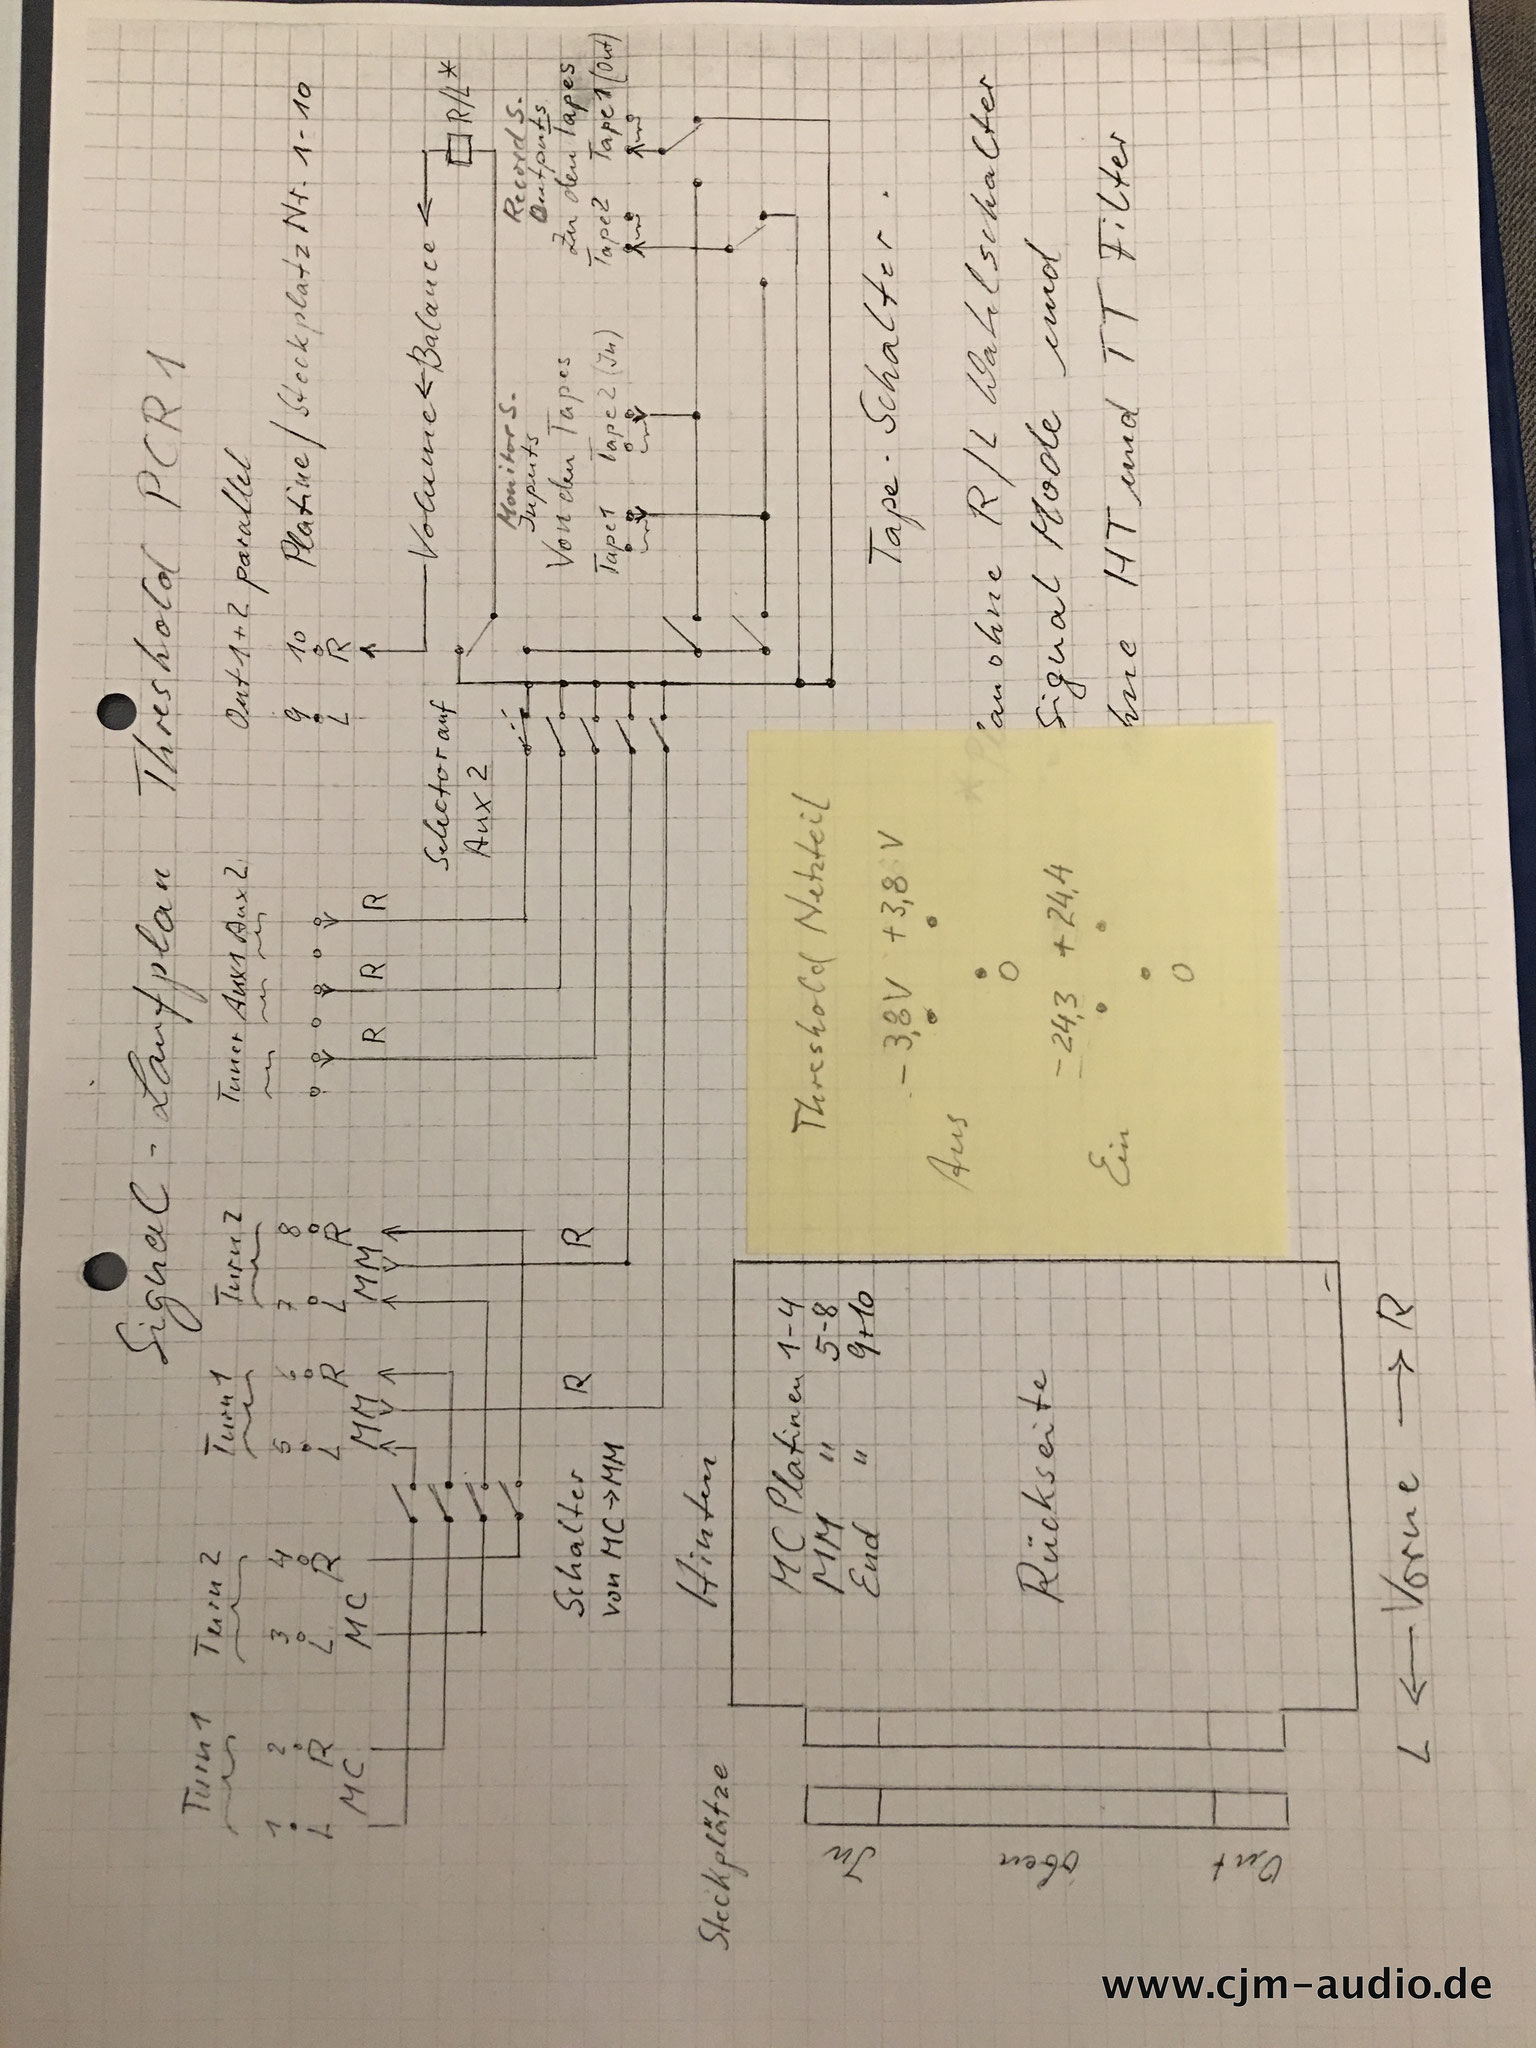 Signal-Laufplan Threshold PCR 1
Turn 1 Turn 2 Turn 1 Turn 2 Tuner Aux 1 Aux 2 Out 1+2 parallel
1 2 3 4 5 6 7 8 9 10 Platine / Steckplatz Nr. 1-10
L R L R L R L R L R
MC MC MM MM
R R R
Selector auf
Aux 2
Volume ← Balance ← R/L*
Schalter
von MC→MM
R R
Monitor S.
Inputs
Von den Tapes
Tape 1 Tape 2 (In)
Record S.
Outputs
Zu den Tapes
Tape 2 Tape 1 (Out)
Tape-Schalter.
Steckplätze
Hinten
MC Platinen 1-4
MM " 5-8
End " 9+10
Rückseite
In
oben
Out
L ← Vorne → R
Threshold Netzteil
-3,8V +3,8V
Aus
0
-24,3 +24,4
Ein
0
ohne R/L Wahlschalter
Signal Mode und
HT und TT Filter
www.cjm-audio.de